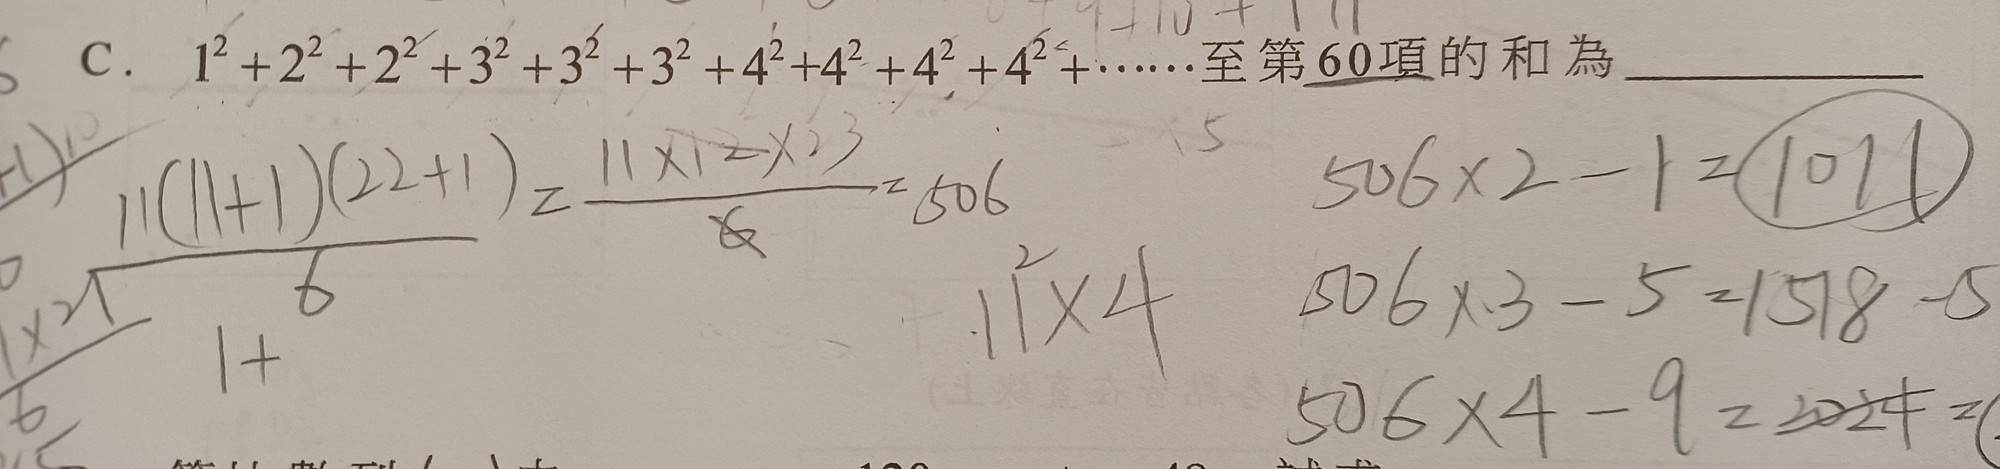 C. 1² + 2² + 2² + 3² + 3² + 3² + 4² + 4² + 4² + 4² + ⋯⋯ 至第60項的和為
11(11+1)(22+1) / 6 = 11×12×23 / 6 = 506
506×2-1=1011
11²×4
506×3-5=1518-5
1+
506×4-9=2024=